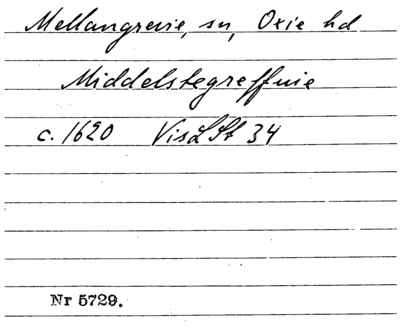 Mellangrevie, sn, Oxie hd
Middelstegreffuie
c. 1620 VisLSt 34
Nr 5729.